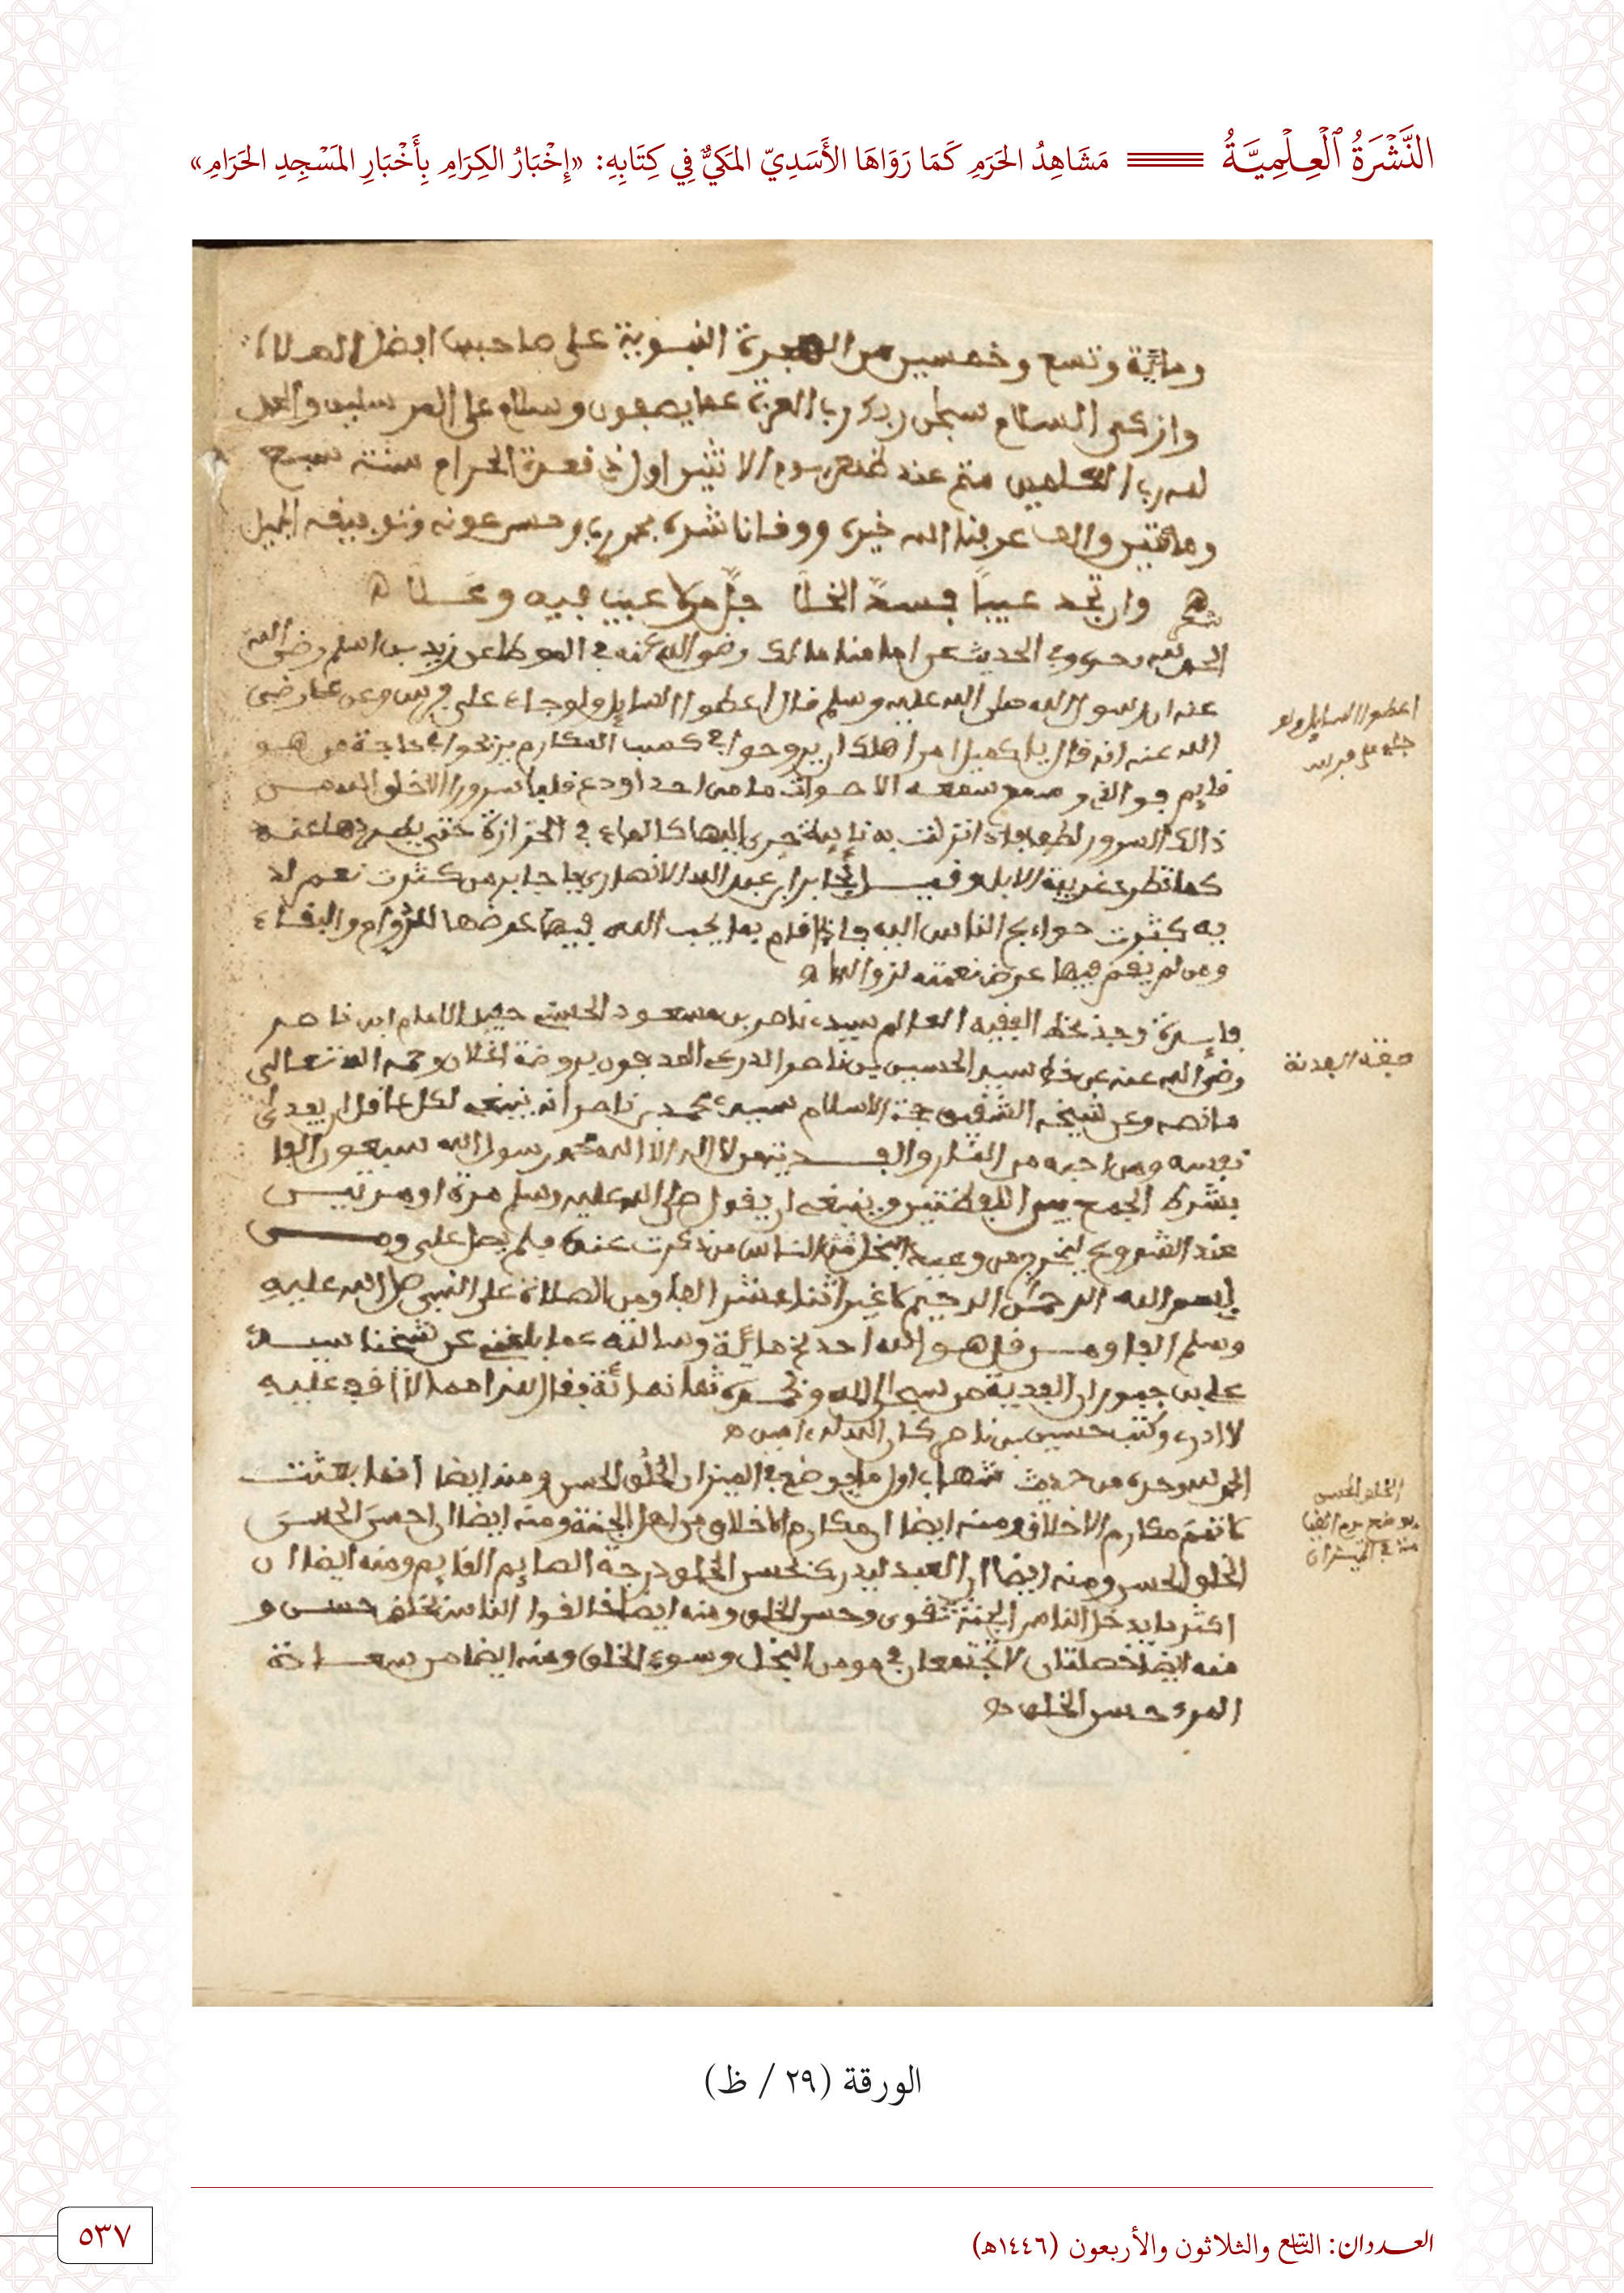 النَّشْرَةُ ٱلْعِلْمِيَّةُ مَشَاهِدُ الحَرَمِ كَمَا رَوَاهَا الأَسَدِيّ المَكيُّ فِي كِتَابِهِ: «إِخْبَارُ الكِرَامِ بِأَخْبَارِ المَسْجِدِ الحَرَامِ»
ومائية وتسع وخمسين من الهجرة النبوية على صاحبها افضل الصلاة
وازكى السلام سبحن ربك رب العزة عما يصفون وسلام على المرسلين والحمد
لله رب العلمين يوم الاثنين اول ذي قعدة الحرام سنة سبع
ومائتين والف عرفنا الله خيره ووقانا شره وحسن عونه وتوفيقه الجميل
شعر وان تجد عيبا فسد الخللا جل من لا عيب فيه وعلا
الحمد لله وفي الحديث عن امامنا مالك رضي الله عنه في الموطا عن زيد بن اسلم رضي الله
عنه ان رسول الله صلى الله عليه وسلم قال اعطوا السايل ولو جاء على فرس وعن
الله عنه انه قال يا كميل امر اهلك ان يروحوا في كسب المكارم ويدلجوا في حاجة من هو
نايم فو الذي وسع سمعه الاصوات ما من احد اودع قلبا سرورا الا خلق الله من
ذالك السرور لطفا فاذا نزلت به نايبة جرى اليها كالماء في حتى يطردها عنه
كما تطرد غريبة الابل جابر ابن عبد الله الانصاري يا جابر من كثرت نعم الله
به كثرت حوايج الناس اليه فاذا قام بما يحب الله فيها عرضها للدوام والبقاء
ومن لم يقم فيها عرض نعمته لزوالها
فايدة وجد بخط الفقيه العالم سيدي ناصر بن مسعود الحسني حفيد الامام ابن ناصر
رضي الله عنه عن خط سيد الحسين بن ناصر الدرعي المدفون بروضة رحمه الله تعالى
ما نصه وعن شيخه الشقيق حجة الاسلام سيدي محمد بن ناصر انه ينبغي لكل عاقل ان يفدي
نفسه ومن احبه من النار والفدية من لا اله الا الله محمد رسول الله سبعون الفا
بشرط الجمع بين اللفظتين وينبغي ان يقول صلى الله عليه وسلم مرة او مرتين
عند الشروع ليخرج من وعيد الناس من ذكرت عنده فلم يصل علي ومن
بسم الله الرحمن الرحيم اثنا عشر الفا ومن الصلاة على النبي صلى الله عليه
وسلم الفا ومن قل هو الله احد مائة وسالته عما بلغني عن شيخنا سيد
علي بن ان الفدية من سبحان الله وبحمده ثمانمائة فقال
لا ادري وكتب حسين بن ناصر كان الله له امين
الحمد لله وحده من حديث شهاب اول ما يوضع في الميزان الخلق الحسن ومنه ايضا انما بعثت
لاتمم مكارم الاخلاق ومنه ايضا ان مكارم الاخلاق من اهل الجنة ومنه ايضا ان احسن الحسن
الخلق الحسن ومنه ايضا ان العبد ليدرك بحسن الخلق درجة الصايم القايم ومنه ايضا ان
اكثر ما يدخل الناس الجنة تقوى وحسن الخلق ومنه ايضا خالقوا الناس بخلق حسن و
منه ايضا خصلتان لا تجتمعان في مومن البخل وسوء الخلق ومنه ايضا من سعادة
المرء حسن الخلق
اعطوا السايل ولو
جاء على فرس
صفة الفدية
الخلق الحسن
الورقة (٢٩ / ظ)
العددان: التاسع والثلاثون والأربعون (١٤٤٦هـ)
٥٣٧